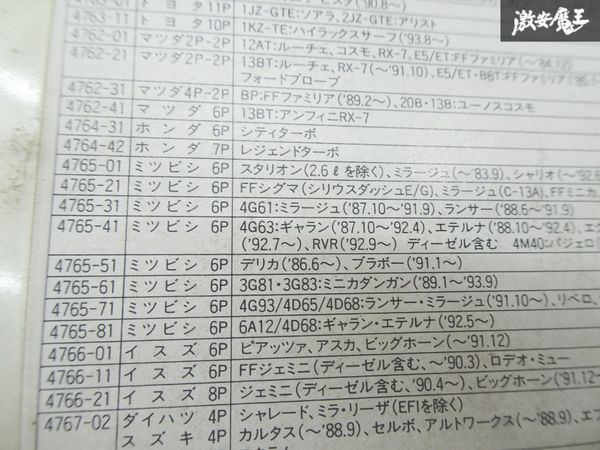 激安魔王
トヨタ 11P 1JZ-GTE:ソアラ、2JZ-GTE:アリスト
4763-11 トヨタ 10P 1KZ-TE:ハイラックスサーフ('93.8〜)
4762-01 マツダ 2P-2P 12AT:ルーチェ、コスモ、RX-7、E5/ET:FFファミリア
4762-21 マツダ 2P-2P 13BT:ルーチェ、RX-7(〜'91.10)、E5/ET・B6T:FFファミリア
フォードプローブ
4762-31 マツダ 4P-2P BP:FFファミリア('89.2〜)、20B・13B:ユーノスコスモ
4762-41 マツダ 6P 13BT:アンフィニRX-7
4764-31 ホンダ 6P シティターボ
4764-42 ホンダ 7P レジェンドターボ
4765-01 ミツビシ 6P スタリオン(2.6ℓを除く)、ミラージュ(〜'83.9)、シャリオ(〜'92.6
4765-21 ミツビシ 6P FFシグマ(シリウスダッシュE/G)、ミラージュ(C-13A)、FFミニカ
4765-31 ミツビシ 6P 4G61:ミラージュ('87.10〜'91.9)、ランサー('88.6〜'91.9)
4765-41 ミツビシ 6P 4G63:ギャラン('87.10〜'92.4)、エテルナ('88.10〜'92.4)、
('92.7〜)、RVR('92.9〜) ディーゼル含む 4M40:パジェロ
4765-51 ミツビシ 6P デリカ('86.6〜)、ブラボー('91.1〜)
4765-61 ミツビシ 6P 3G81・3G83:ミニカダンガン('89.1〜'93.9)
4765-71 ミツビシ 6P 4G93/4D65/4D68:ランサー・ミラージュ('91.10〜)、リベロ
4765-81 ミツビシ 6P 6A12/4D68:ギャラン・エテルナ('92.5〜)
4766-01 イスズ 6P ピアッツァ、アスカ、ビッグホーン(〜'91.12)
4766-11 イスズ 6P FFジェミニ(ディーゼル含む、〜'90.3)、ロデオ・ミュー
4766-21 イスズ 8P ジェミニ(ディーゼル含む、'90.4〜)、ビッグホーン('91.12〜
4767-02 ダイハツ 4P シャレード、ミラ・リーザ(EFIを除く)
スズキ 4P カルタス(〜'88.9)、セルボ、アルトワークス(〜'88.9)、エブ